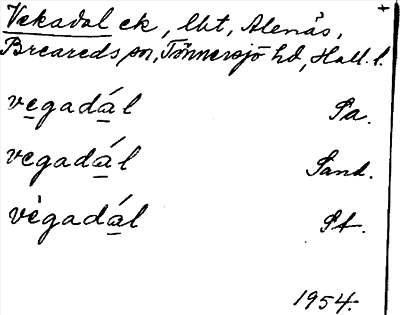 Vekadal ek, lht, Alenäs, +
Breareds sn, Tönnersjö hd, Hall. l.
vegadál Sa.
vegadál Sand.
vègadál St.
1954.